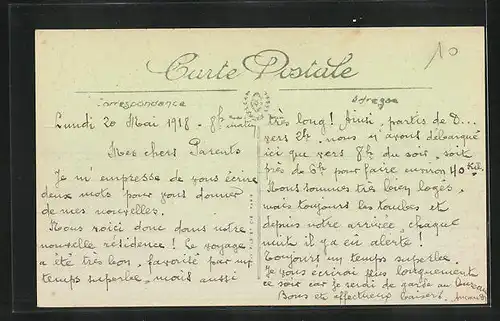 10
Carte Postale
Correspondance
Adresse
Lundi 20 Mai 1918 - 8h matin
Mes chers Parents
Je m'empresse de vous écrire
deux mots pour vous donner
de mes nouvelles.
Nous voici donc dans notre
nouvelle résidence ! Le voyage
a été très bon, favorisé par un
temps superbe, mais aussi
très long ! Ainsi, partis de D...
vers 2h. nous n'avons débarqué
ici que vers 8h du soir, soit
près de 6h pour faire environ 40 Kil.
Nous sommes très bien logés,
mais toujours les bombes et
depuis notre arrivée, chaque
nuit il y a eu alerte !
Toujours un temps superbe.
Je vous écrirai plus longuement
ce soir car je serai de garde au bureau
Bons et affectueux baisers.